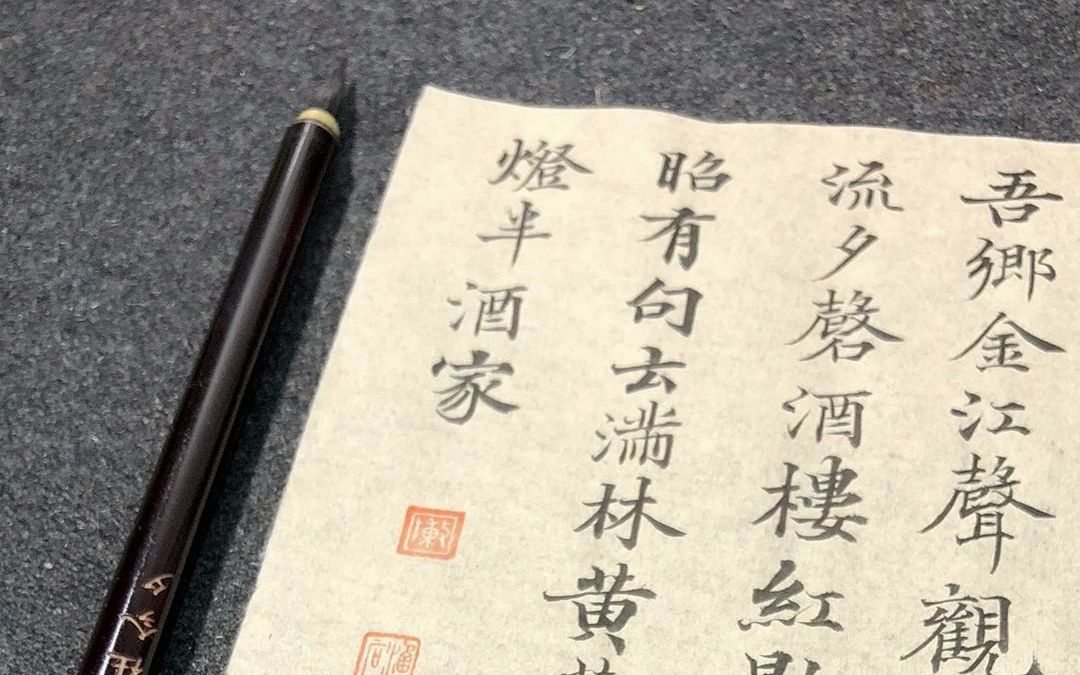 吾鄉金江聲觀
流夕磬酒樓紅
昭有句去滿林黃
燈半酒家